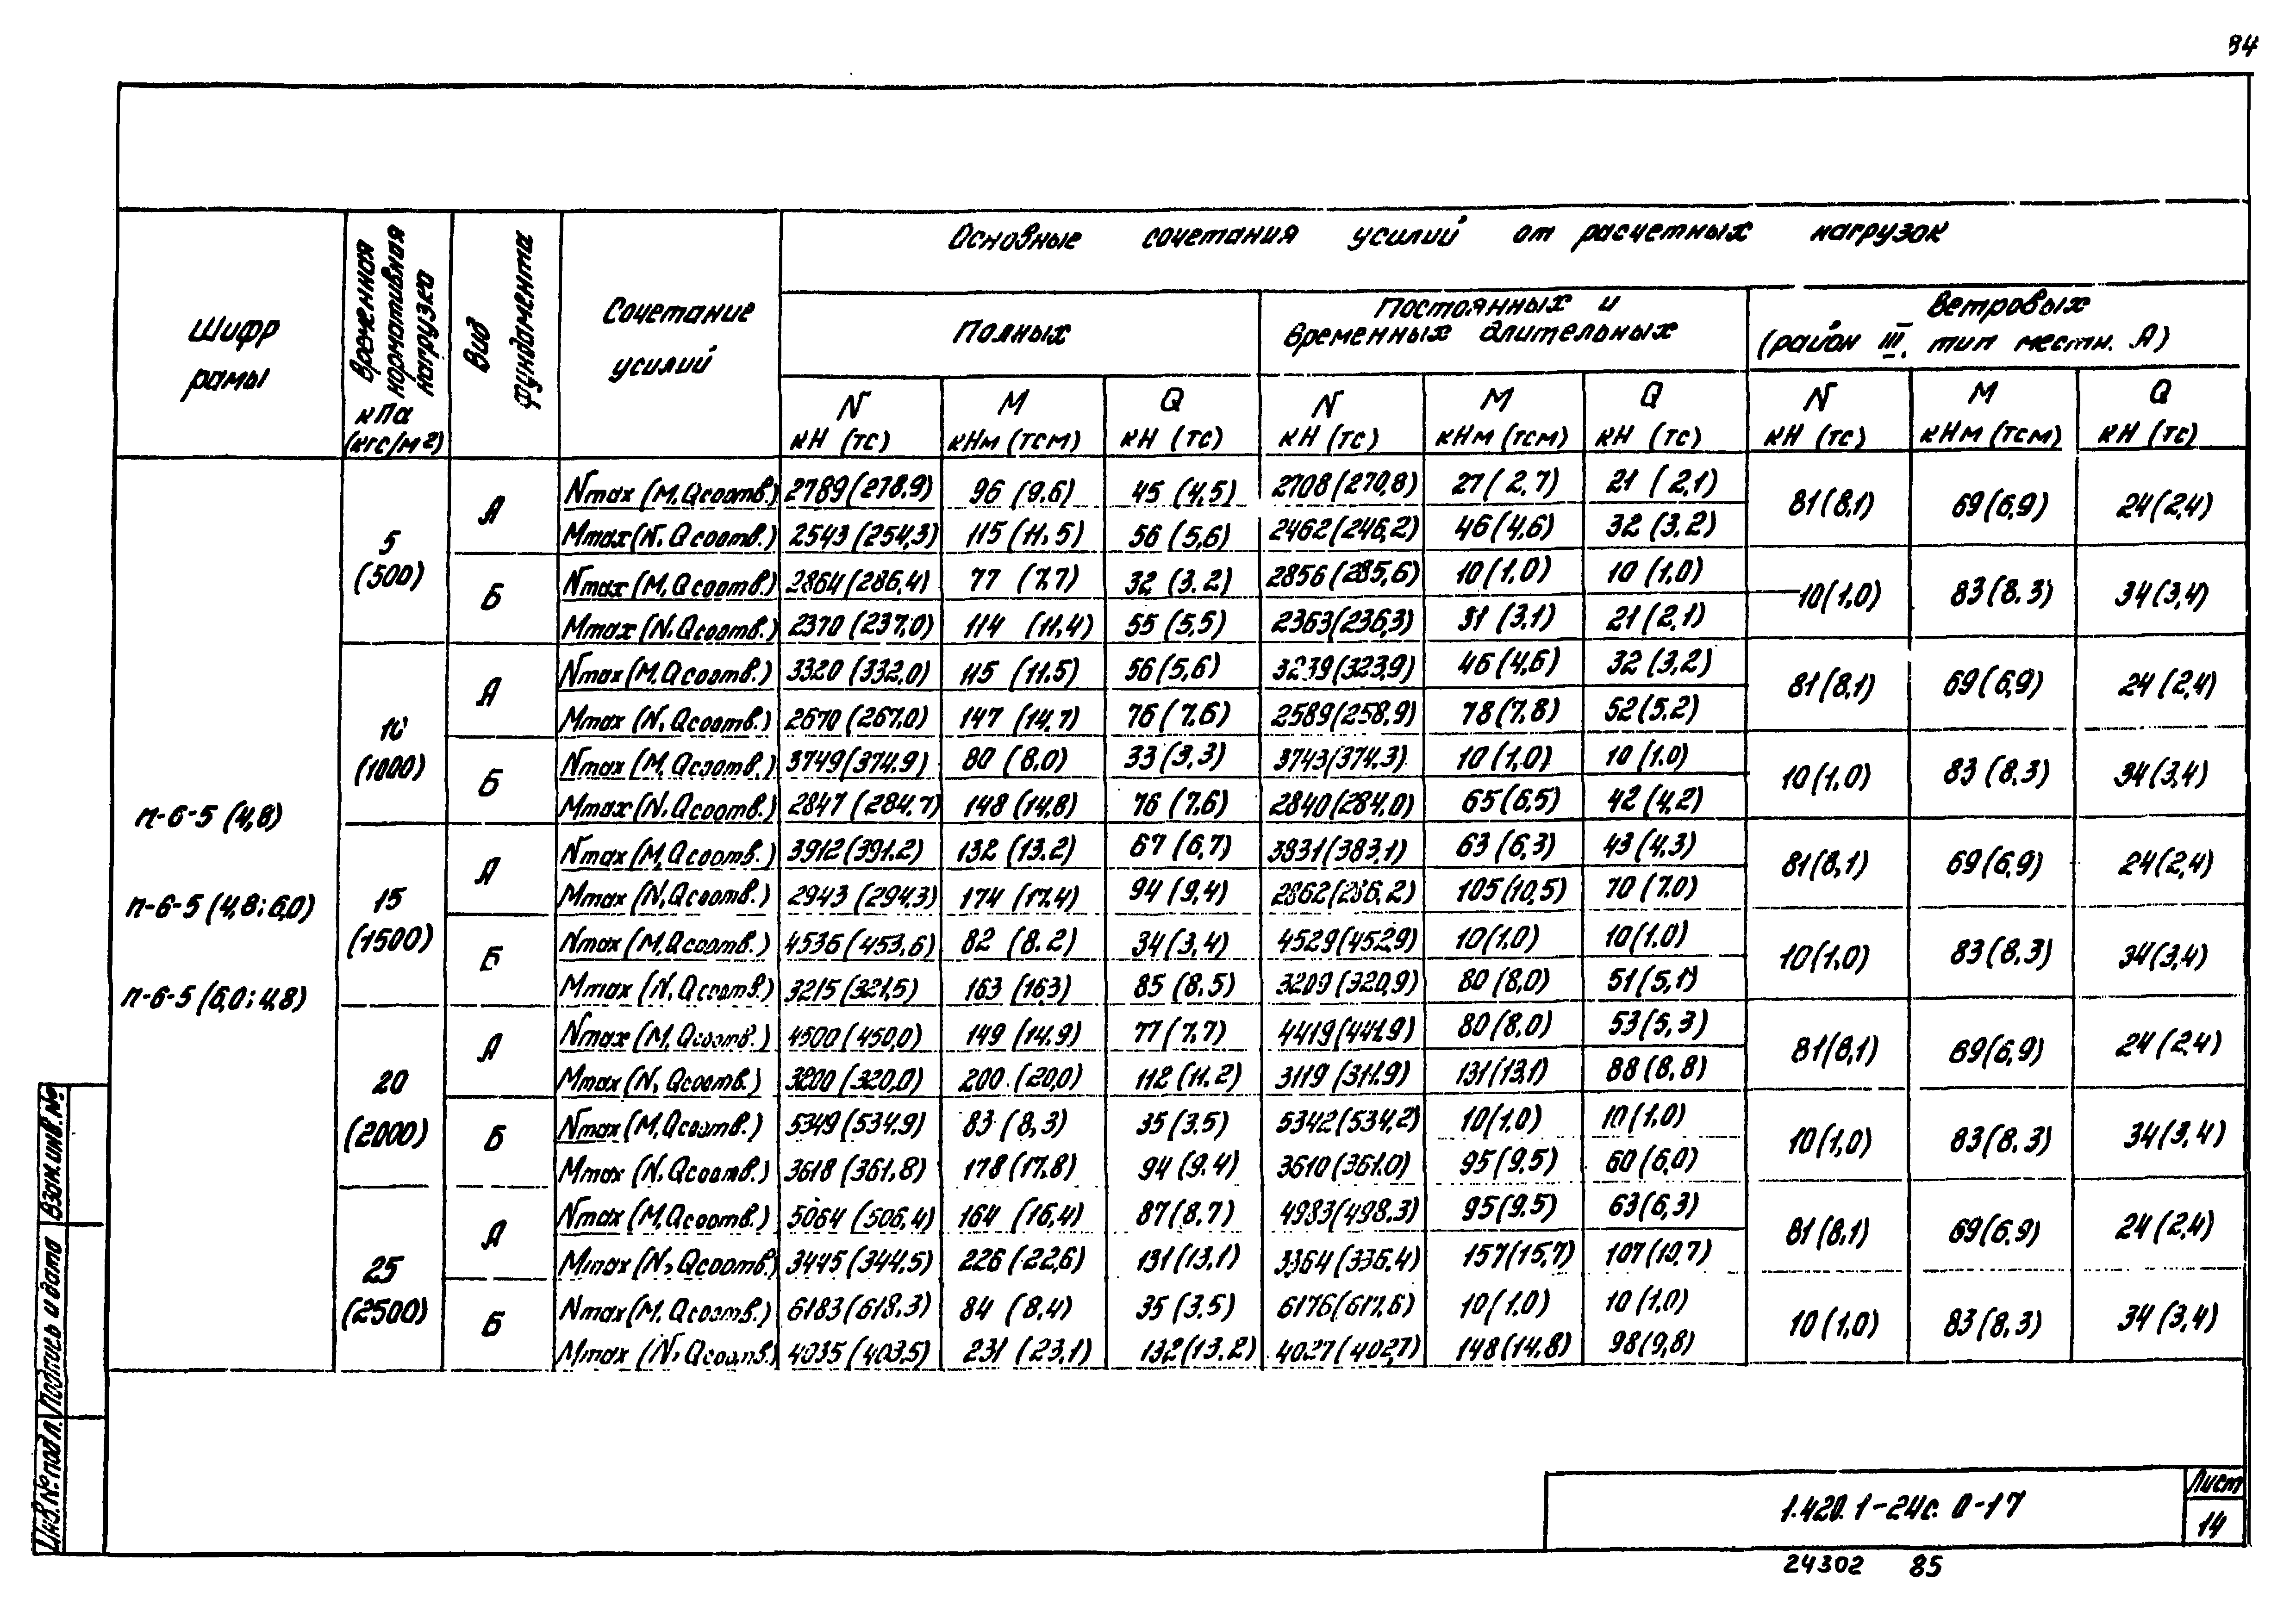 94
Шифр рамы
Временная нормативная нагрузка кПа (кгс/м²)
Вид фундамента
Сочетание усилий
Основные сочетания усилий от расчетных нагрузок
Полных
Постоянных и временных длительных
Ветровых (район III, тип местн. А)
N кН (тс) M кНм (тсм) Q кН (тс) N кН (тс) M кНм (тсм) Q кН (тс) N кН (тс) M кНм (тсм) Q кН (тс)
п-6-5 (4,8)
п-6-5 (4,8; 6,0)
п-6-5 (6,0; 4,8)
5 (500)
А
Nmax (M, Qсоотв.) 2789 (278,9) 96 (9,6) 45 (4,5) 2708 (270,8) 27 (2,7) 21 (2,1) 81 (8,1) 69 (6,9) 24 (2,4)
Mmax (N, Qсоотв.) 2543 (254,3) 115 (11,5) 56 (5,6) 2462 (246,2) 46 (4,6) 32 (3,2)
Б
Nmax (M, Qсоотв.) 2864 (286,4) 77 (7,7) 32 (3,2) 2856 (285,6) 10 (1,0) 10 (1,0) 10 (1,0) 83 (8,3) 34 (3,4)
Mmax (N, Qсоотв.) 2370 (237,0) 114 (11,4) 55 (5,5) 2363 (236,3) 31 (3,1) 21 (2,1)
10 (1000)
А
Nmax (M, Qсоотв.) 3320 (332,0) 115 (11,5) 56 (5,6) 3239 (323,9) 46 (4,6) 32 (3,2) 81 (8,1) 69 (6,9) 24 (2,4)
Mmax (N, Qсоотв.) 2670 (267,0) 147 (14,7) 76 (7,6) 2589 (258,9) 78 (7,8) 52 (5,2)
Б
Nmax (M, Qсоотв.) 3749 (374,9) 80 (8,0) 33 (3,3) 3743 (374,3) 10 (1,0) 10 (1,0) 10 (1,0) 83 (8,3) 34 (3,4)
Mmax (N, Qсоотв.) 2847 (284,7) 148 (14,8) 76 (7,6) 2840 (284,0) 65 (6,5) 42 (4,2)
15 (1500)
А
Nmax (M, Qсоотв.) 3912 (391,2) 132 (13,2) 67 (6,7) 3831 (383,1) 63 (6,3) 43 (4,3) 81 (8,1) 69 (6,9) 24 (2,4)
Mmax (N, Qсоотв.) 2943 (294,3) 174 (17,4) 94 (9,4) 2862 (286,2) 105 (10,5) 70 (7,0)
Б
Nmax (M, Qсоотв.) 4536 (453,6) 82 (8,2) 34 (3,4) 4529 (452,9) 10 (1,0) 10 (1,0) 10 (1,0) 83 (8,3) 34 (3,4)
Mmax (N, Qсоотв.) 3215 (321,5) 163 (16,3) 85 (8,5) 3209 (320,9) 80 (8,0) 51 (5,1)
20 (2000)
А
Nmax (M, Qсоотв.) 4500 (450,0) 149 (14,9) 77 (7,7) 4419 (441,9) 80 (8,0) 53 (5,3) 81 (8,1) 69 (6,9) 24 (2,4)
Mmax (N, Qсоотв.) 3200 (320,0) 200 (20,0) 112 (11,2) 3119 (311,9) 131 (13,1) 88 (8,8)
Б
Nmax (M, Qсоотв.) 5349 (534,9) 83 (8,3) 35 (3,5) 5342 (534,2) 10 (1,0) 10 (1,0) 10 (1,0) 83 (8,3) 34 (3,4)
Mmax (N, Qсоотв.) 3618 (361,8) 178 (17,8) 94 (9,4) 3610 (361,0) 95 (9,5) 60 (6,0)
25 (2500)
А
Nmax (M, Qсоотв.) 5064 (506,4) 164 (16,4) 87 (8,7) 4983 (498,3) 95 (9,5) 63 (6,3) 81 (8,1) 69 (6,9) 24 (2,4)
Mmax (N, Qсоотв.) 3445 (344,5) 226 (22,6) 131 (13,1) 3364 (336,4) 157 (15,7) 107 (10,7)
Б
Nmax (M, Qсоотв.) 6183 (618,3) 84 (8,4) 35 (3,5) 6176 (617,6) 10 (1,0) 10 (1,0) 10 (1,0) 83 (8,3) 34 (3,4)
Mmax (N, Qсоотв.) 4035 (403,5) 231 (23,1) 132 (13,2) 4027 (402,7) 148 (14,8) 98 (9,8)
Взам. инв. №
Подпись и дата
Инв. № подл.
1.420.1-24с. 0-17
Лист
14
24302 85